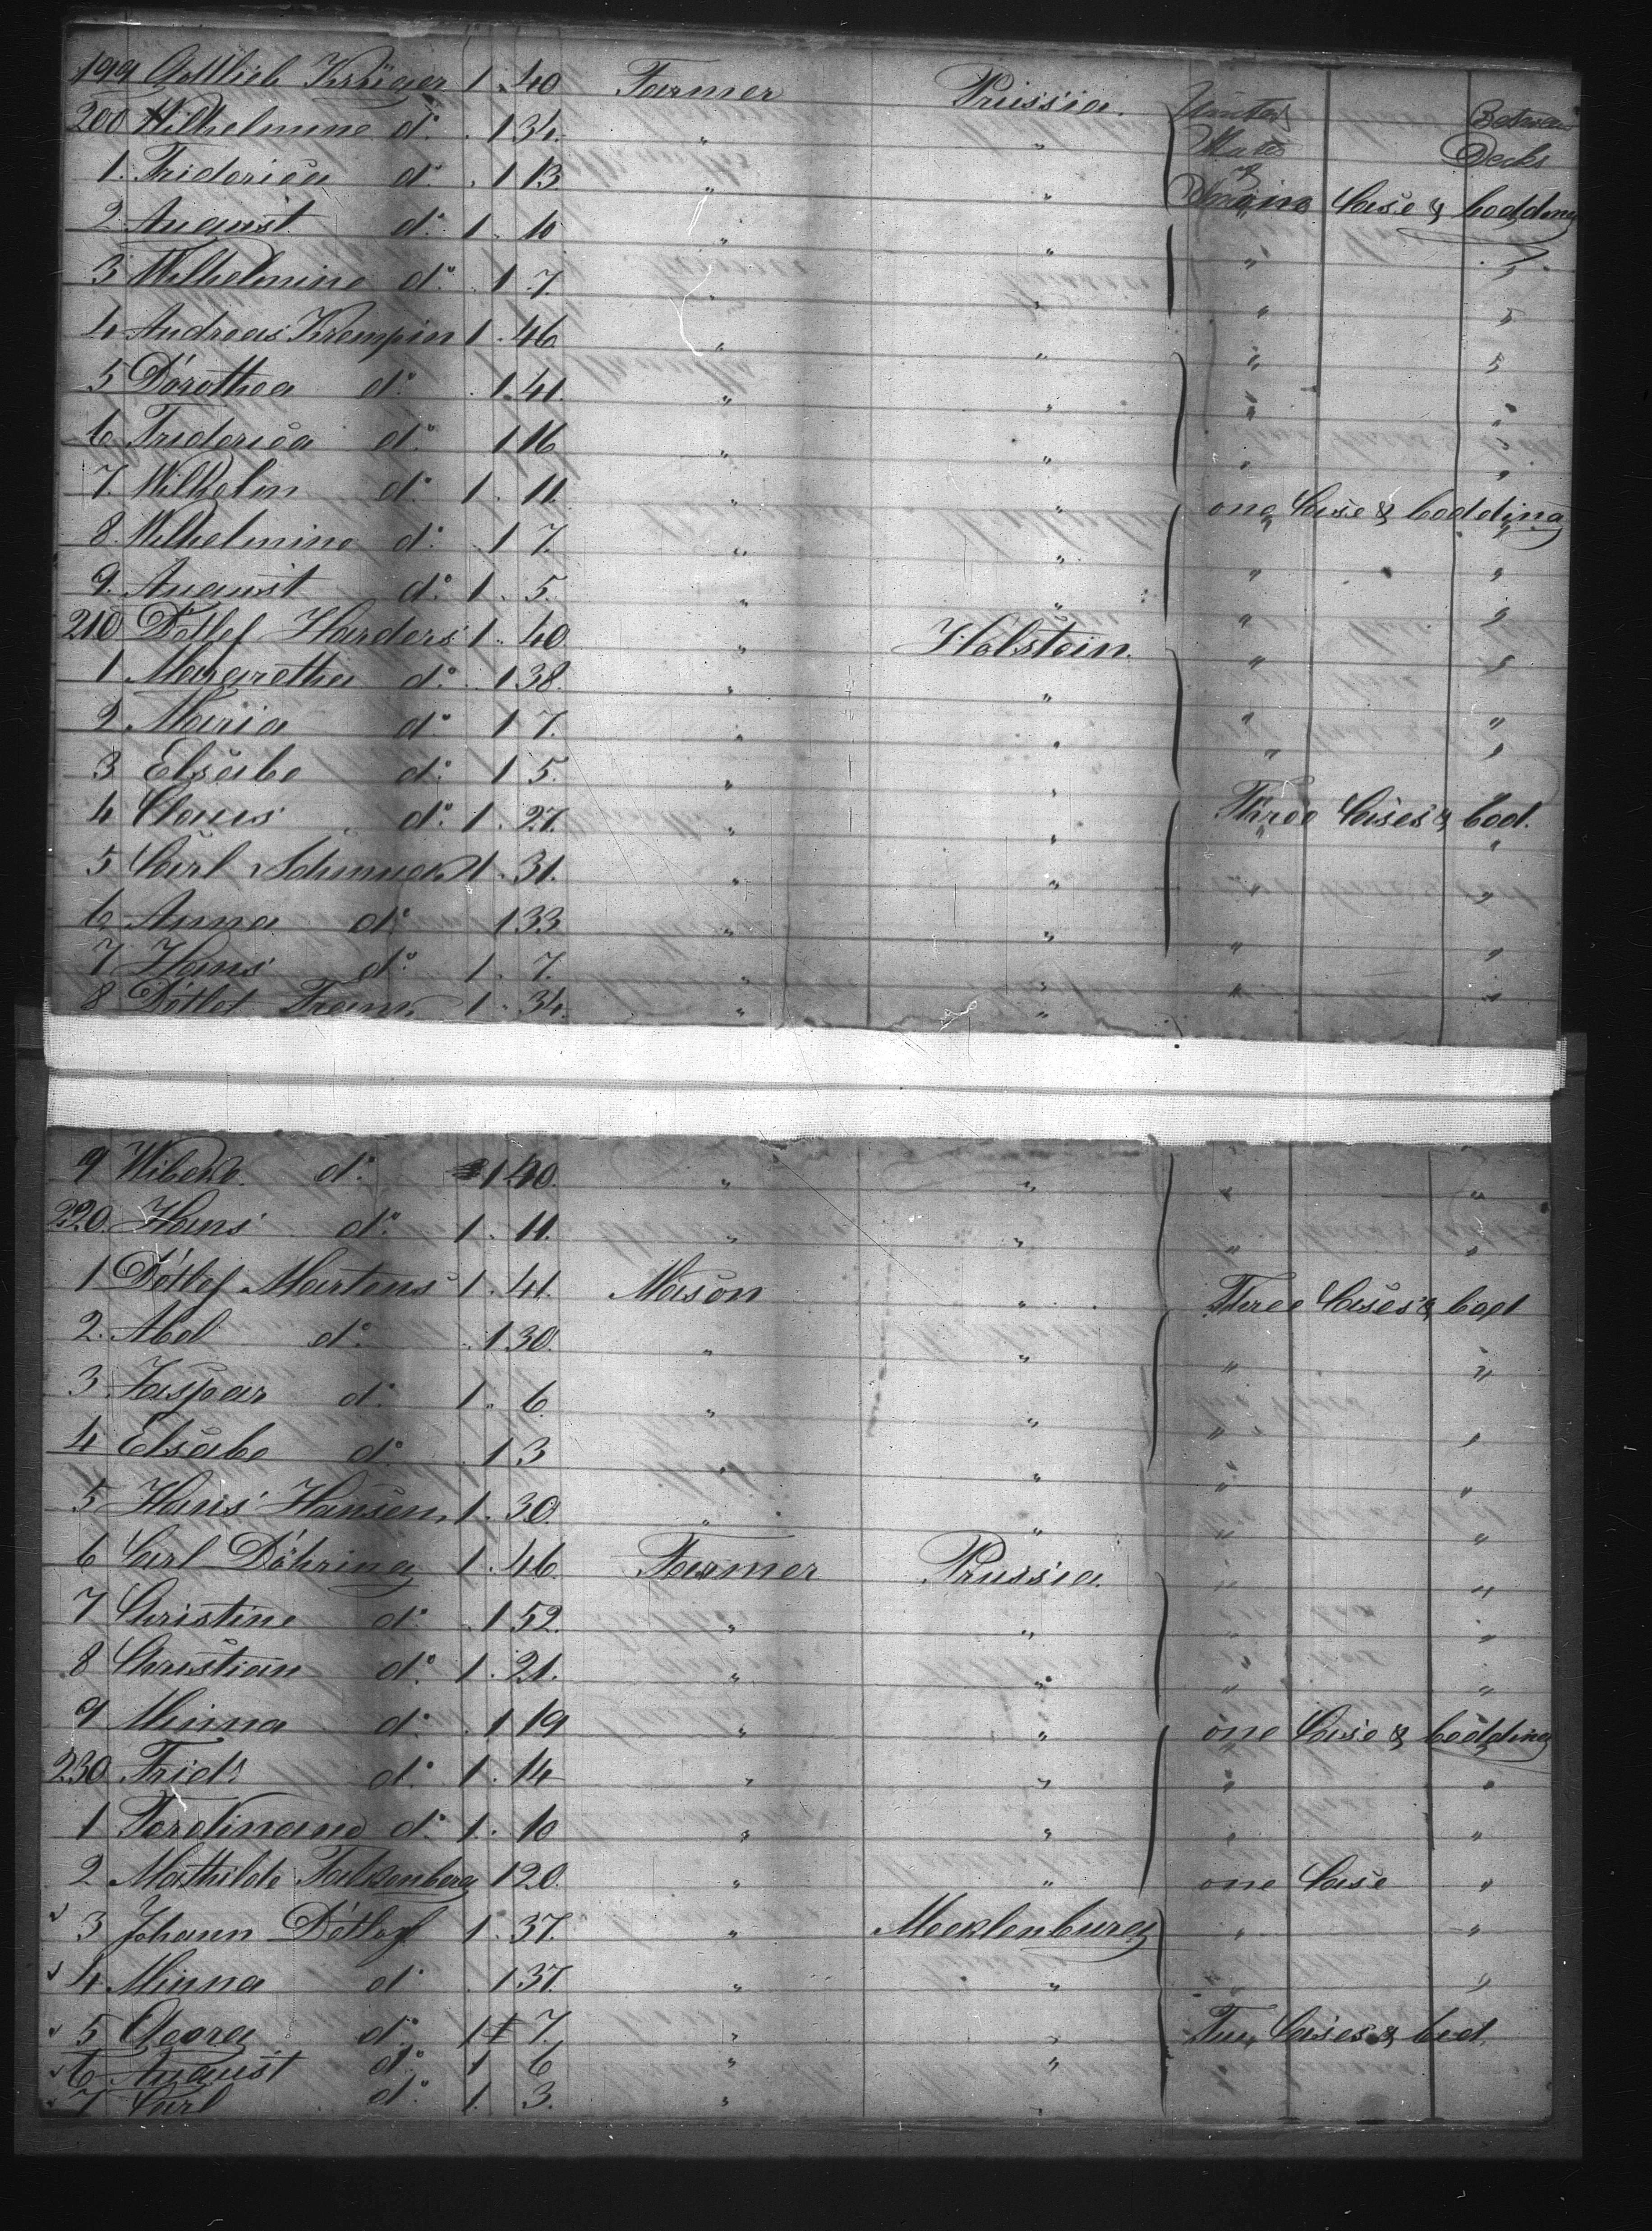 199 Gottlieb Krüger 1 . 40 Farmer Prussia. United Between
200 Wilhelmine do. . 1 34. " " States Decks
1. Friderica do. . 1 13 " " of
2 August do. 1 . 10 " " " Case & bedding
3 Wilhelmine do. . 1 7. " " " "
4 Andreas Krempin 1 . 46 " " " "
5 Dorothea do. . 1 41. " " " "
6 Friderica do. 1 16 " " " "
7. Wilhelm do. 1 . 11. " " one Case & bedding
8. Wilhelmine do. . 1 7. " " " "
9. August do. 1 . 5. " " " "
210 Detlef Harders 1 . 40 " Holstein. " "
1 Margaretha do. . 1 38. " " " "
2 Maria do. 1 7. " " " "
3 Elsabe do. 1 5. " " " "
4 Claus do. 1 . 27. " " Three Cases & bed.
5 Carl 1 . 31. " " " "
6 Anna do. 1 33 " " " "
7 Hans do. 1 . 7. " " " "
8 Detlef 1 . 34. " "
9 Wibeke do. 1 40. " " " "
220. Hans do. 1 . 11. " " " "
1 Detlef Martens 1 . 41. Mason " Three Cases & bed
2. Abel do. . 1 30. " " " "
3 Jaspar do. 1 . 6. " " " "
4 Elsabe do. . 1 3 " " " "
5 Hans Hansen 1 . 30. " " " "
6 Carl Döhring 1 . 46 Farmer Prussia. " "
7 Christine do. . 1 52. " " " "
8 Christian do. 1 . 21. " " " "
9 Minna do. . 1 19 " " one Case & bedding
230 Fridr. do. 1 . 14 " " " "
1 Ferdinand do. 1 . 10 " " " "
2 Mathilde Falkenberg 1 20. " " one Case "
3 Johann Detlef 1 . 37. " Mecklenburg " "
4 Minna do . 1 37. " " " "
5 Georg do. 1 7. " " Two Cases & bed.
6 August do. 1 6 " "
7 Carl do. 1. 3. "